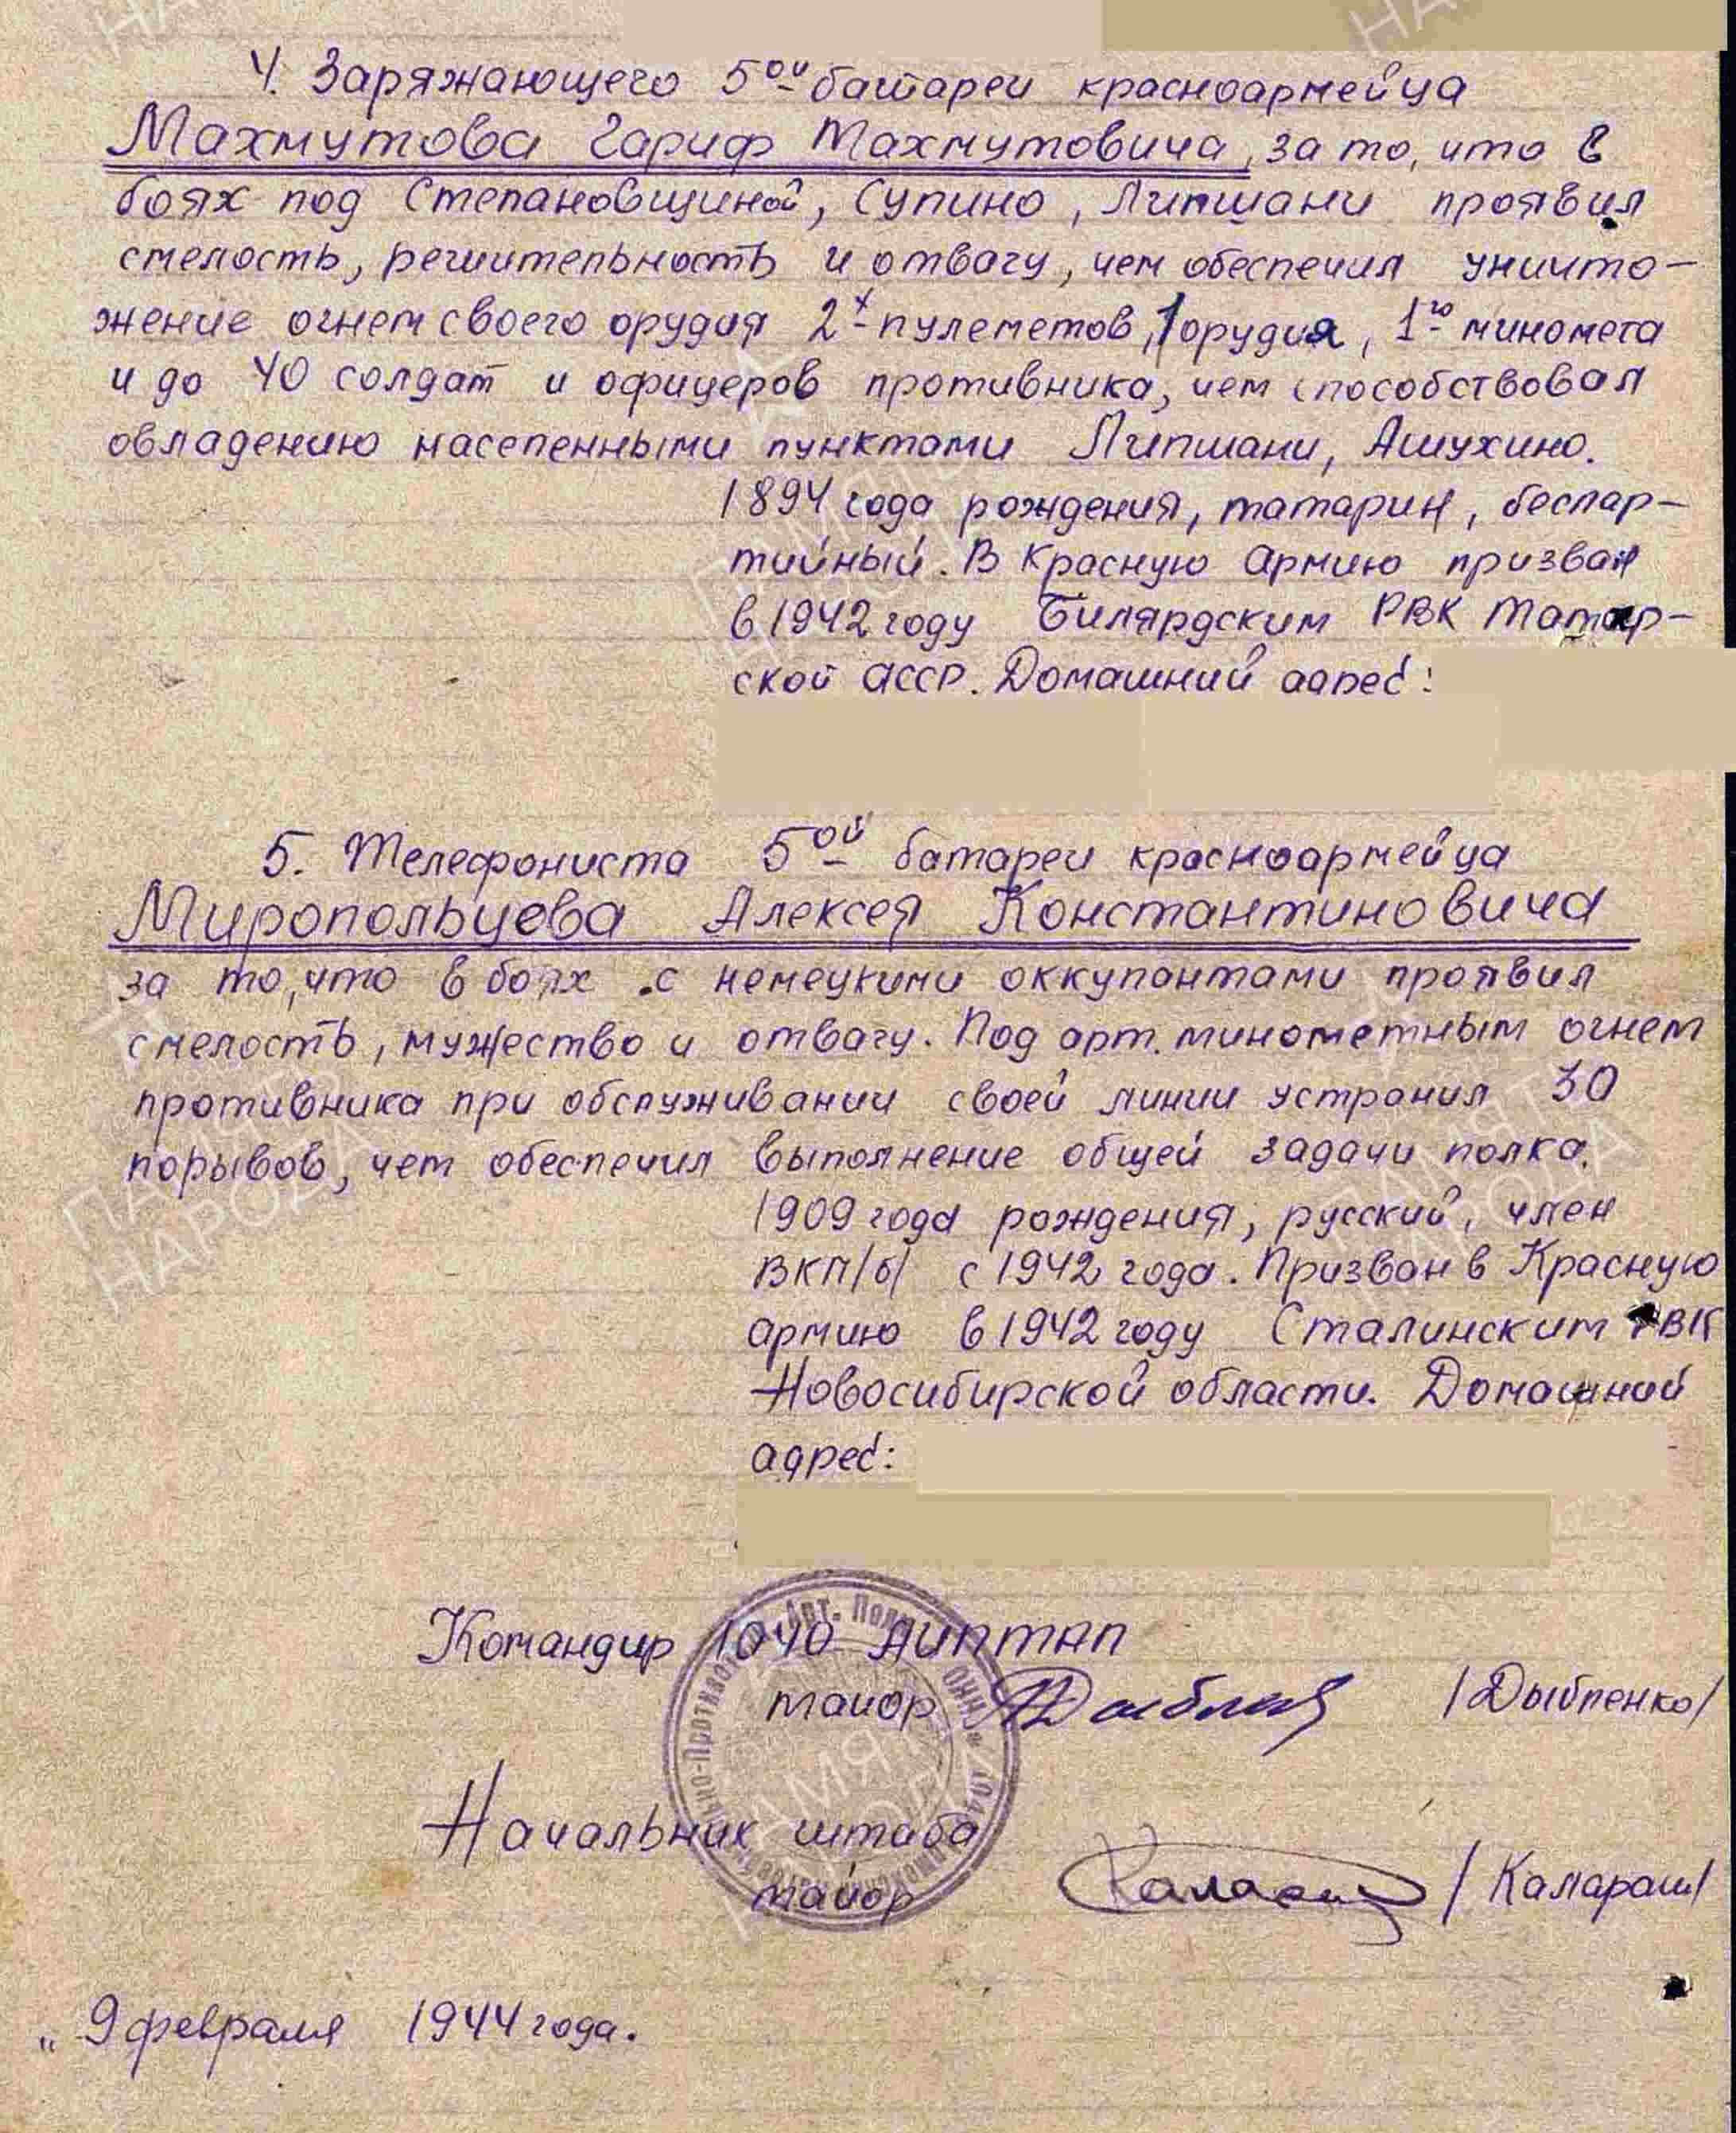 4. Заряжающего 5ой батареи красноармейца
Махмутова Гариф Махмутовича, за то, что в
боях под Степановщиной, Супино, Липшани проявил
смелость, решительность и отвагу, чем обеспечил уничто-
жение огнем своего орудия 2х пулеметов, 1 орудия, 1го миномета
и до 40 солдат и офицеров противника, чем способствовал
овладению населенными пунктами Липшани, Ашухино.
1894 года рождения, татарин, беспар-
тийный. В Красную Армию призван
в 1942 году Билярдским РВК Татар-
ской АССР. Домашний адрес:
5. Телефониста 5ой батареи красноармейца
Миропольцева Алексея Константиновича
за то, что в боях с немецкими оккупантами проявил
смелость, мужество и отвагу. Под арт. минометным огнем
противника при обслуживании своей линии устранил 30
порывов, чем обеспечил выполнение общей задачи полка.
1909 года рождения, русский, член
ВКП/б/ с 1942 года. Призван в Красную
армию в 1942 году Сталинским РВК
Новосибирской области. Домашний
адрес:
Командир 1040 АИПТАП
майор /Дыбленко/
Начальник штаба
майор /Калараш/
„9 февраля 1944 года.
ПАМЯТЬ
НАРОДА